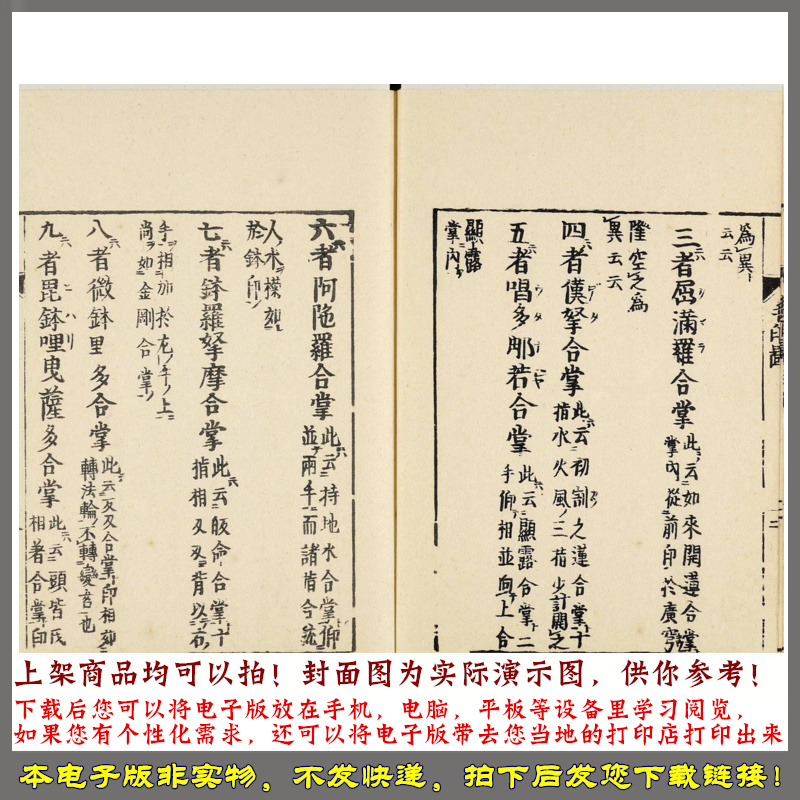 為異
云云
三者屈滿羅合掌
此云如來開蓮合掌
掌內從前印於廣穹
隆空之為
異云云
四者僕拏合掌
此云初割之蓮合掌十
指水火風三指少計開之
五者唱多那若合掌
此云顯露合掌二
手仰相並向上合
顯露
掌內
六者阿陁羅合掌
此云持地水合掌仰
並兩手而諸指合
人水模刻
於鉢印
七者鉢羅拏摩合掌
此云皈命合掌十
指相叉叉背以右
手相加於左手上
尚如金剛合掌
八者微鉢里多合掌
此云反叉合掌印相刻
轉法輪不轉變者也
九者毘鉢哩曳薩多合掌
此云頭皆
相著合掌印
上架商品均可以拍！封面图为实际演示图，供你参考！
下载后您可以将电子版放在手机，电脑，平板等设备里学习阅览，
如果您有个性化需求，还可以将电子版带去您当地的打印店打印出来
本电子版非实物，不发快递，拍下后发您下载链接！